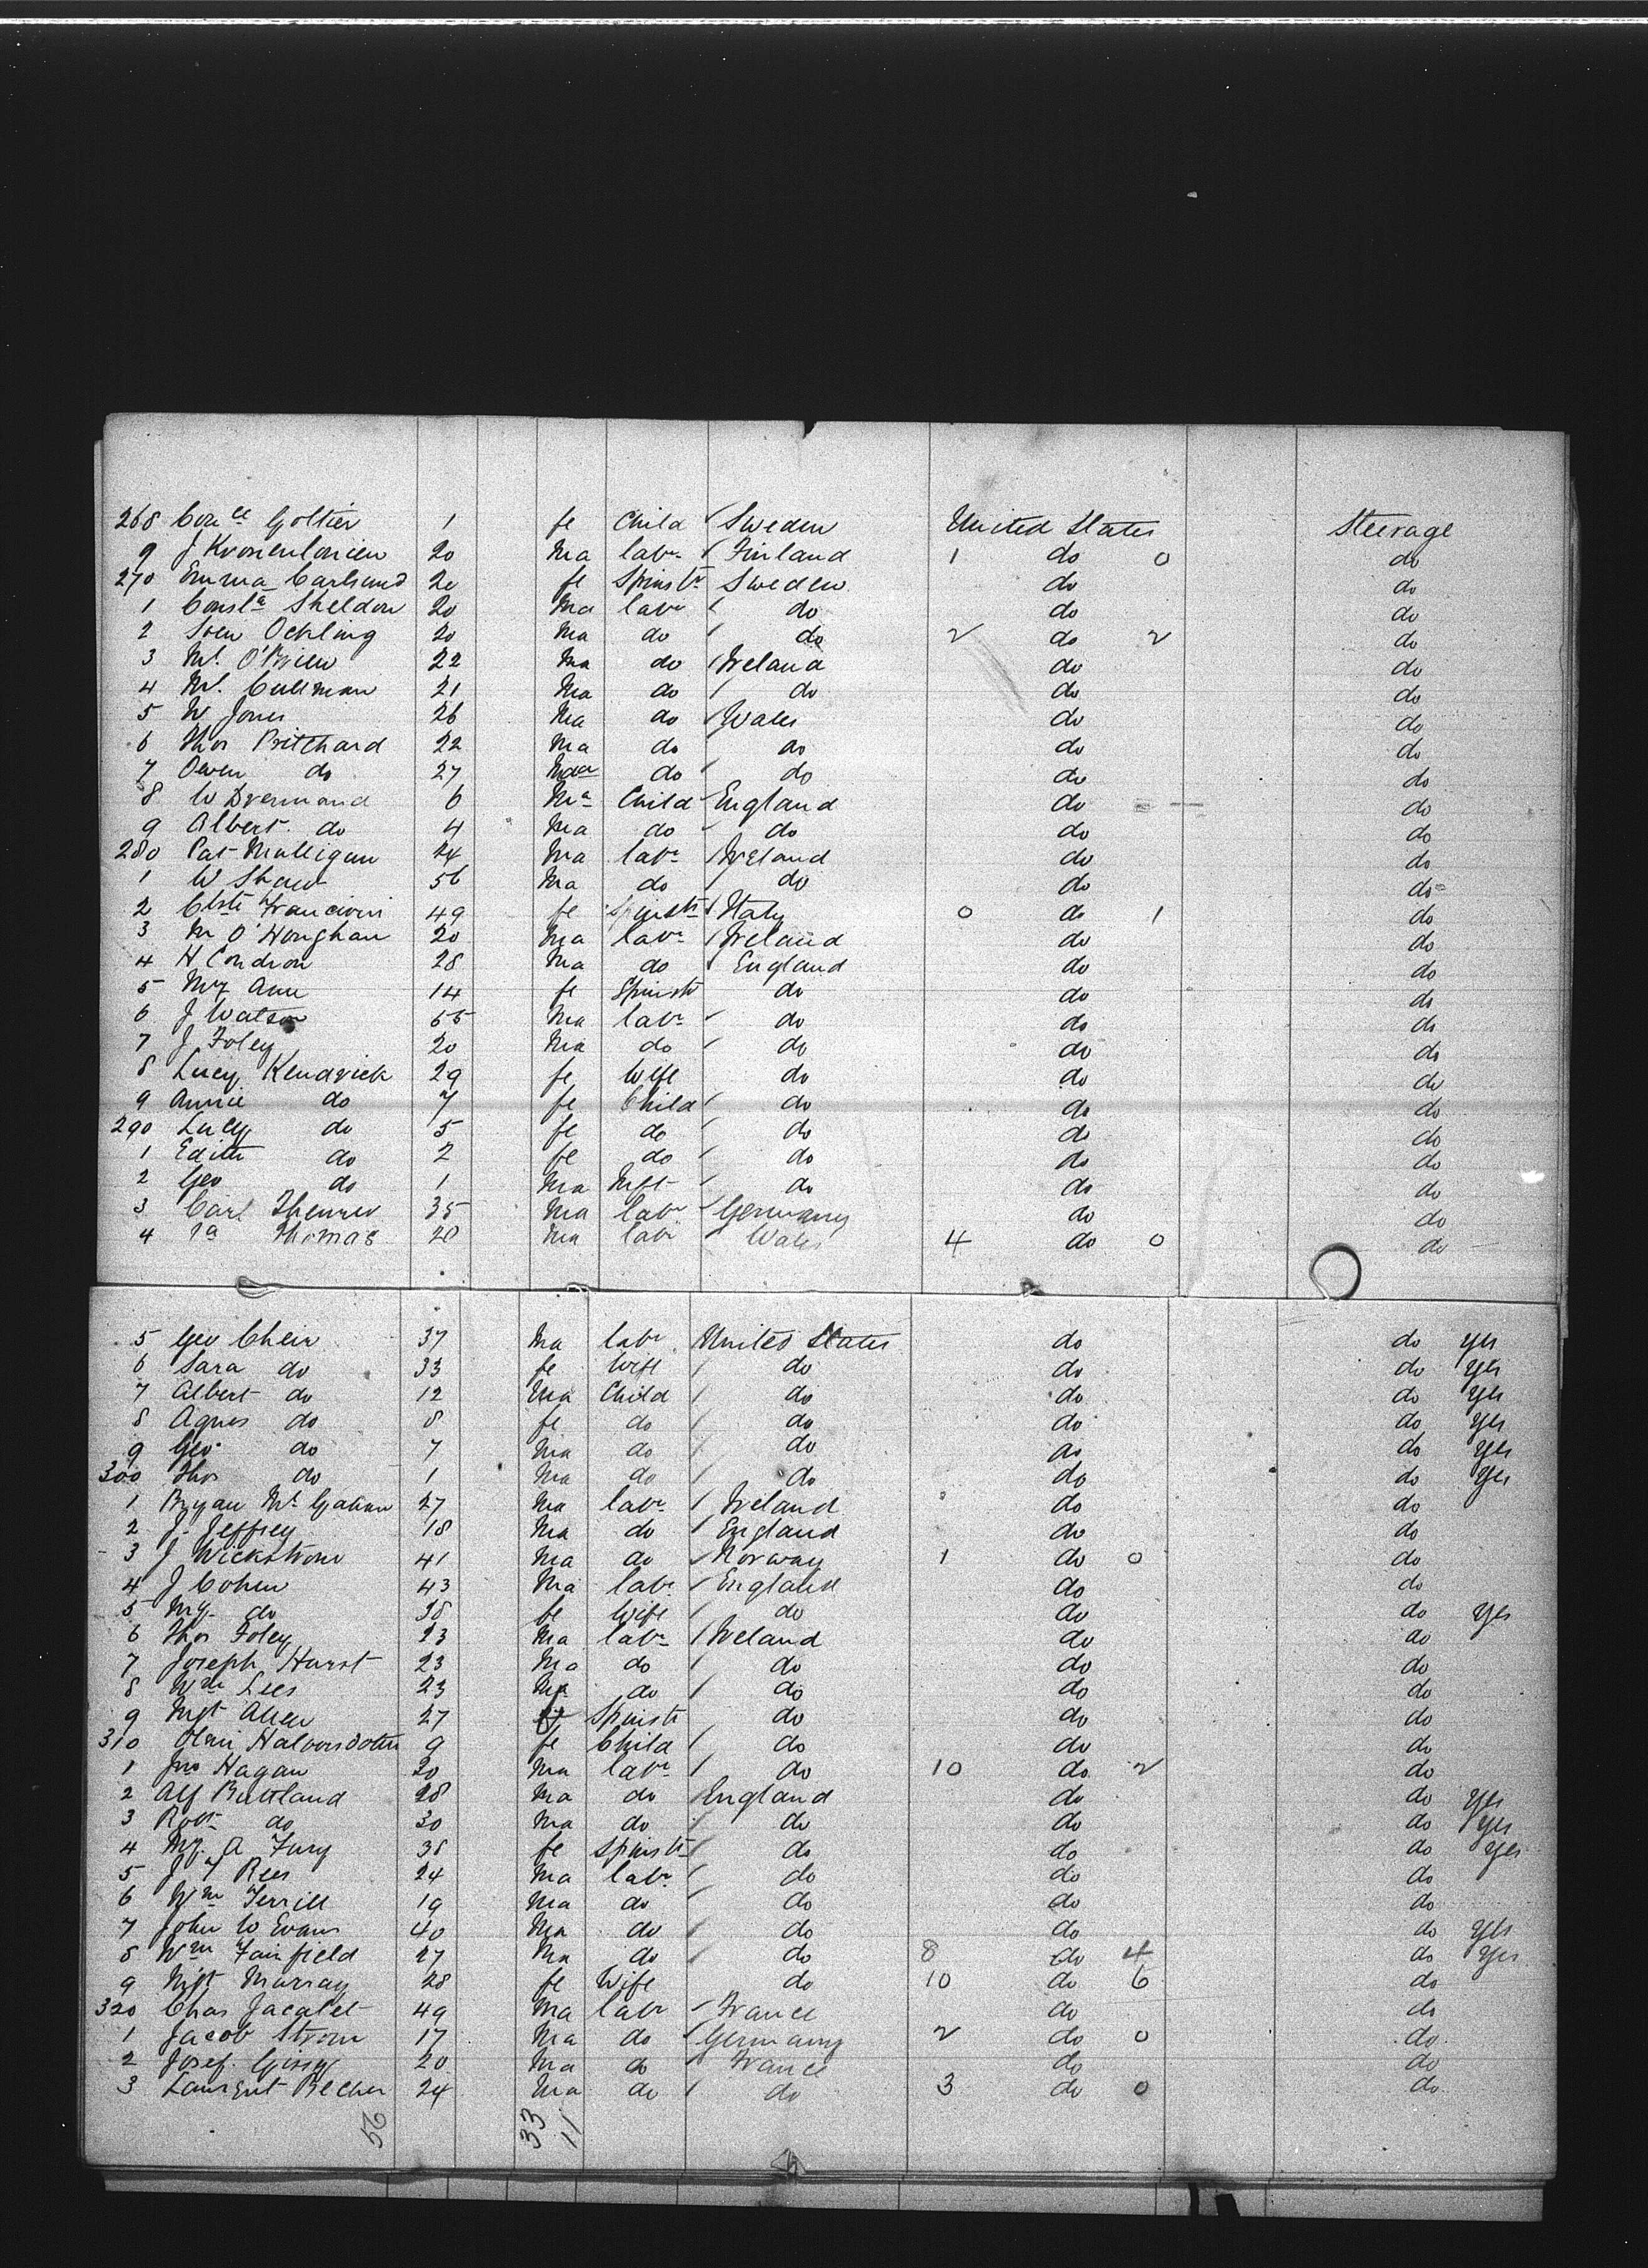 268 Con ce Goltier 1 fe Child Sweden United States Steerage
9 J 20 Ma labr Finland 1 do 0 do
270 Emma Carlsund 20 fe Spinstr Sweden do do
1 Consla Sheldon 20 Ma labr do do do
2 Sven Ochling 20 Ma do do 2 do 2 do
3 Ml. O'Brien 22 Ma do Ireland do do
4 Ml. Cullman 21 Ma do do do do
5 W Jones 26 Ma do Wales do do
6 Thos Pritchard 22 Ma do do do do
7 Owen do 27 Ma do do do do
8 W 6 Ma Child England do do
9 Albert do 4 Ma do do do do
280 Pat Mulligan 24 Ma labr Ireland do do
1 W Shaw 56 Ma do do do do
2 49 fe Spinstr Italy 0 do 1 do
3 M O'Houghan 20 Ma labr Ireland do do
4 H Condron 28 Ma do England do do
5 My Ann 14 fe Spinstr do do do
6 J Watson 65 Ma labr do do do
7 J Foley 20 Ma do do do do
8 Lucy Kendrick 29 fe Wife do do do
9 Annie do 7 fe Child do do do
290 Lucy do 5 fe do do do do
1 Edith do 2 fe do do do do
2 Geo do 1 Ma Inft do do do
3 Carl 35 Ma labr Germany do do
4 Thomas 20 Ma labr Wales 4 do 0 do
5 Geo Cheir 37 Ma labr United States do do Yes
6 Sara do 33 fe Wife do do do Yes
7 Albert do 12 Ma Child do do do Yes
8 Agnes do 8 fe do do do do Yes
9 Geo. do 7 Ma do do do do Yes
300 Thos do 1 Ma do do do do Yes
1 Bryan Mc Gahan 27 Ma labr Ireland do do
2 J. Jeffrey 18 Ma do England do do
3 J Wickstrom 41 Ma do Norway 1 do 0 do
4 J Cohen 43 Ma labr England do do
5 My do 38 fe Wife do do do Yes
6 Thos Foley 23 Ma labr Ireland do do
7 Joseph Hurst 23 Ma do do do do
8 Wm Lees 23 Ma do do do do
9 Mgt Allen 27 f Spinstr do do do
310 Halvorsdotter 9 fe Child do do do
1 Jno Hagan 20 Ma labr do 10 do 2 do
2 Alf Buttland 28 Ma do England do do Yes
3 Robt do 30 Ma do do do do Yes
4 My. A Fury 38 fe Spinstr do do do Yes
5 J Rees 24 Ma labr do do do
6 Wm Terrill 19 Ma do do do do
7 John W Evans 40 Ma do do do do Yes
8 Wm Fairfield 27 Ma do do 8 do 4 do Yes
9 Mgt Murray 28 fe Wife do 10 do 6 do
320 Chas Jacalet 49 Ma labr France do do
1 Jacob Strom 17 Ma do Germany 2 do 0 do
2 Josef 20 Ma do France do do
3 Laurent Becher 24 Ma do do 3 do 0 do
56 33 11